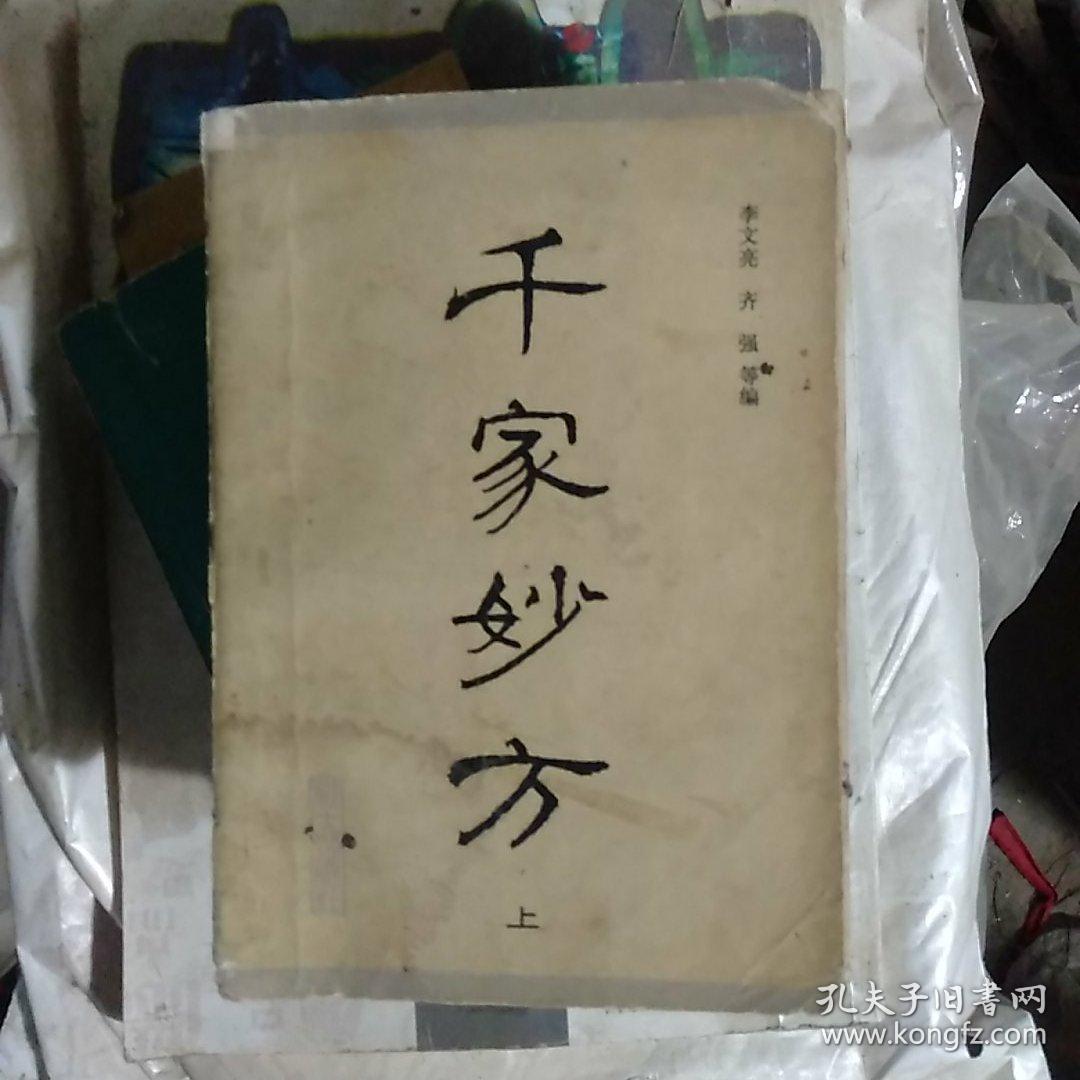 李文亮 齐 强 等编
千家妙方
上
孔夫子旧書网
www.kongfz.com